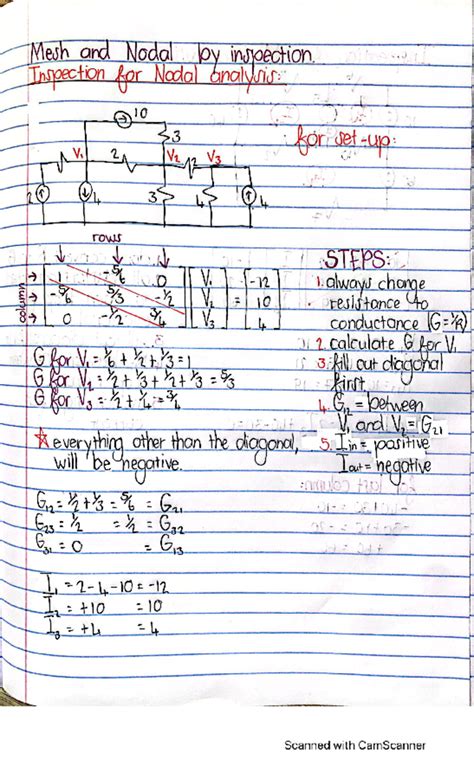 Mesh and Nodal by inspection.
Inspection for Nodal analysis:
10
3
for set-up:
V₁ 2 V₂ V₃
2
2 4 3 4 4
rows
column
1 -5/6 0 V₁ -12
-5/6 5/3 -1/2 V₂ = 10
0 -1/2 3/4 V₃ 4
STEPS:
1. always change
resistance to
conductance (G=1/R)
2. calculate G for V₁
3. fill out diagonal
first
4. G₁₂ = between
V₁ and V₂ = G₂₁
5. Iin = positive
Iout = negative
G for V₁ = 1/6 + 1/2 + 1/3 = 1
G for V₂ = 1/2 + 1/3 + 1/2 + 1/3 = 5/3
G for V₃ = 1/2 + 1/4 = 3/4
everything other than the diagonal,
will be negative.
G₁₂ = 1/2 + 1/3 = 5/6 = G₂₁
G₂₃ = 1/2 = 1/2 = G₃₂
G₃₁ = 0 = G₁₃
I₁ = 2-4-10 = -12
I₂ = +10 = 10
I₃ = +4 = 4
Scanned with CamScanner